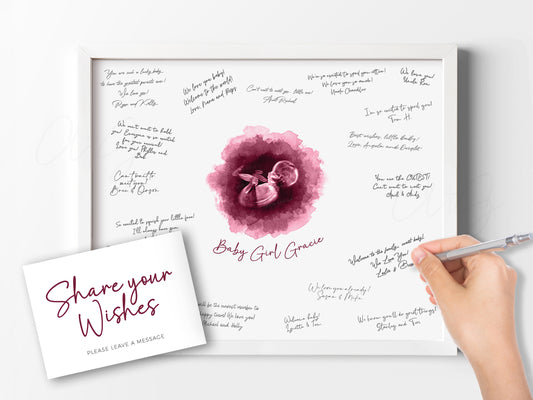 You are such a lucky baby
to have the greatest parents ever!
We love you!
Ross and Kelly
We love you baby!
Welcome to the world!
Love, Nana and Pops
Can't wait to meet you, little one!
Aunt Rachel
We're so excited to spoil you rotten!
We love you so much!
Uncle Chandler
We love you!
Uncle Ron
I'm so excited to spoil you!
Tom H.
We can't wait to hold
you! Everyone is so excited
for your arrival!
Love you! Phyllis and
Bob
Best wishes, little baby!
Love, Angela and Dwight
Can't wait to
meet you!
Bree & Orson
You are the CUTEST!
Can't wait to met you!
April & Andy
So excited to squish your little face!
I'll always have your
Baby Girl Gracie
Welcome to the family, sweet baby!
We Love You!
Leslie &
We love you already!
Susan & Mike
be the newest member to
family! We love you!
Michael and Holly
Welcome baby!
Lynette & Tom
We know you'll do great things!
Stanley and Tom
Share your
Wishes
PLEASE LEAVE A MESSAGE